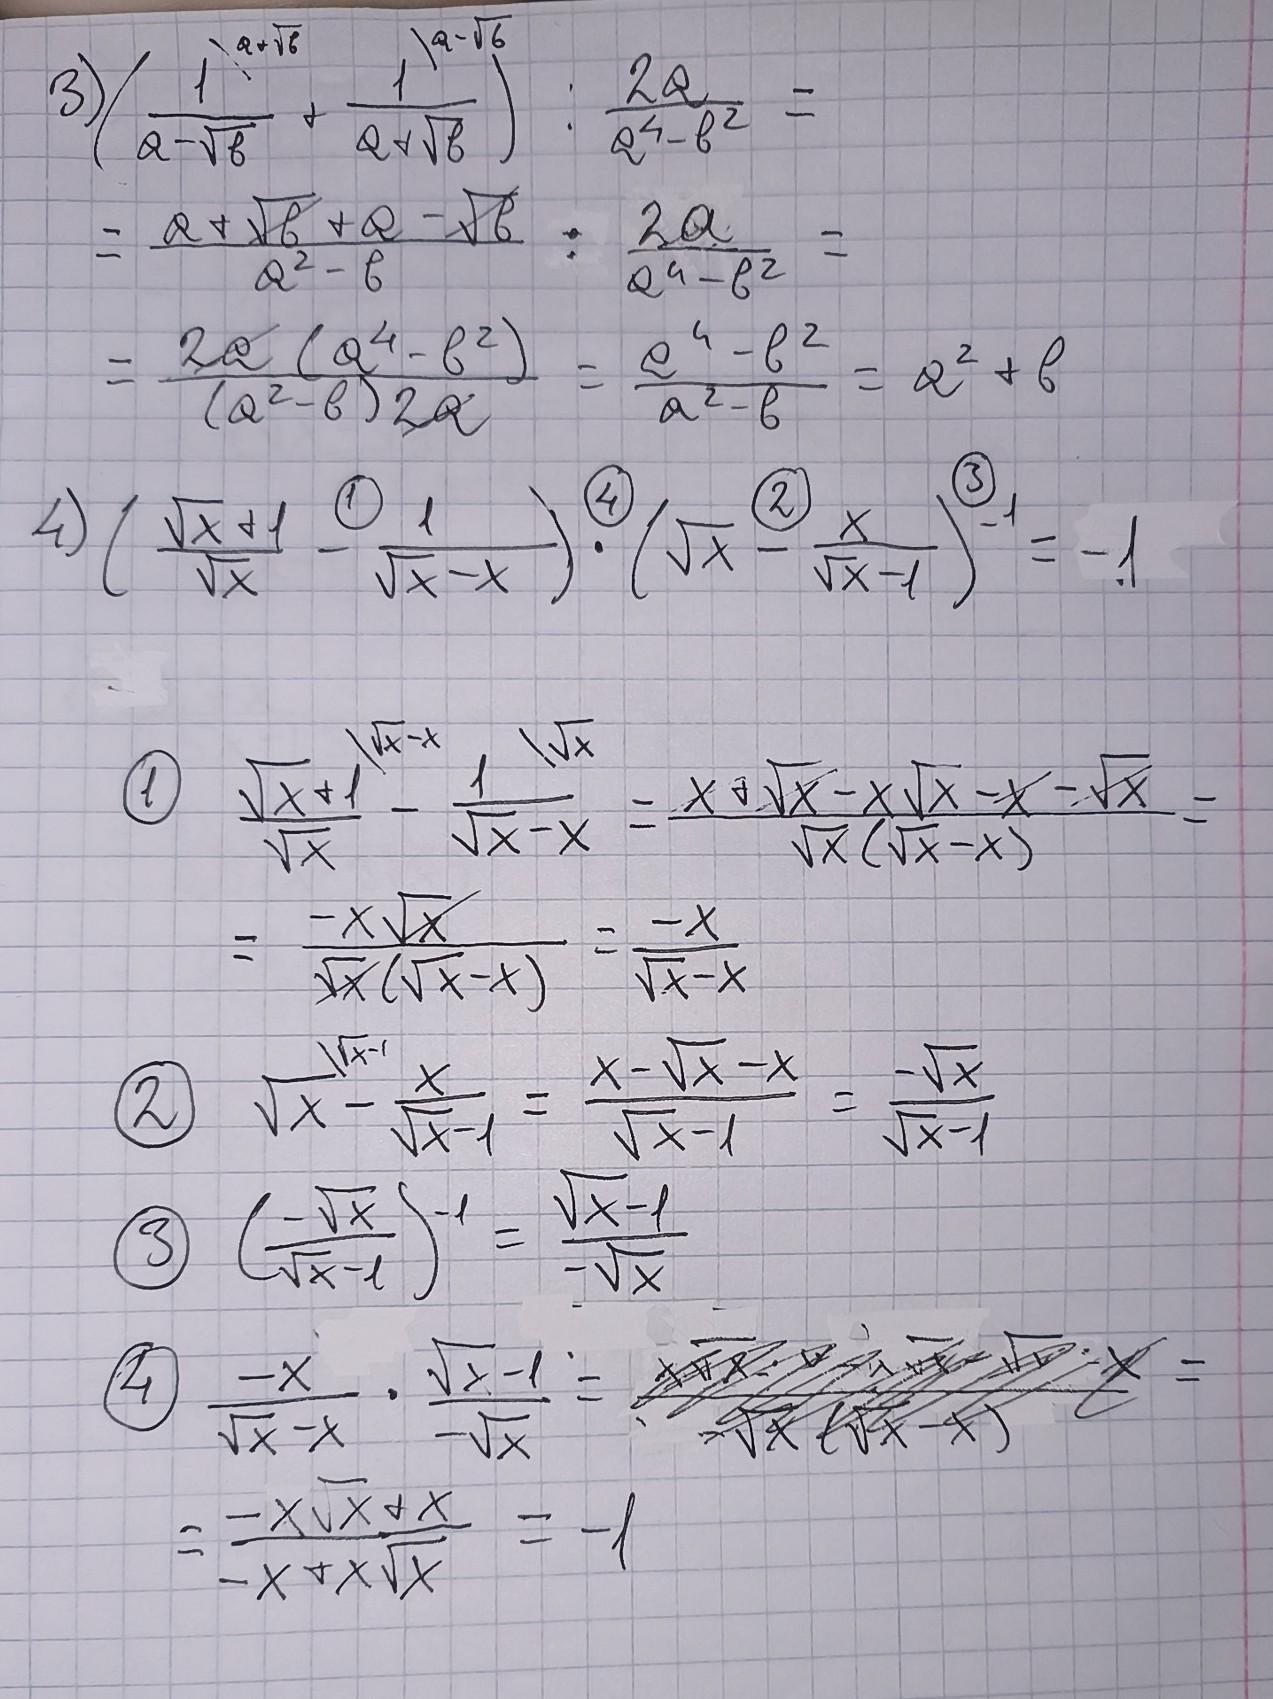 3) ( 1/(a-√b) \a+√b + 1/(a+√b) \a-√b ) : 2a/(a⁴-b²) =
= (a+√b+a-√b)/(a²-b) : 2a/(a⁴-b²) =
= 2a(a⁴-b²)/((a²-b)2a) = (a⁴-b²)/(a²-b) = a²+b
4) ( (√x+1)/√x -① 1/(√x-x) ) ·④ ( √x -② x/(√x-1) )⁻¹ ③ = -1
① (√x+1)/√x \√x-x - 1/(√x-x) \√x = (x+√x-x√x-x-√x)/(√x(√x-x)) =
= -x√x/(√x(√x-x)) = -x/(√x-x)
② √x \√x-1 - x/(√x-1) = (x-√x-x)/(√x-1) = -√x/(√x-1)
③ (-√x/(√x-1))⁻¹ = (√x-1)/(-√x)
④ -x/(√x-x) · (√x-1)/(-√x) = /(-√x(√x-x)) =
= (-x√x+x)/(-x+x√x) = -1